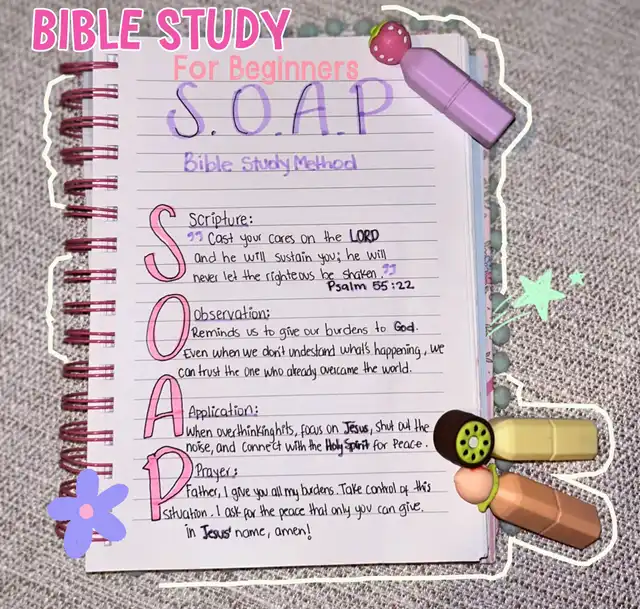 BIBLE STUDY
For Beginners
S.O.A.P
Bible Study Method
S
Scripture:
" Cast your cares on the LORD
and he will sustain you; he will
never let the righteous be shaken."
Psalm 55:22
O
Observation:
Reminds us to give our burdens to God.
Even when we don't undestand what's happening, we
can trust the One who already overcame the world.
A
Application:
When overthinking hits, focus on Jesus, shut out the
noise, and connect with the Holy Spirit for Peace.
P
Prayer:
Father, I give you all my burdens. Take control of this
situation. I ask for the peace that only you can give.
in Jesus' name, amen!